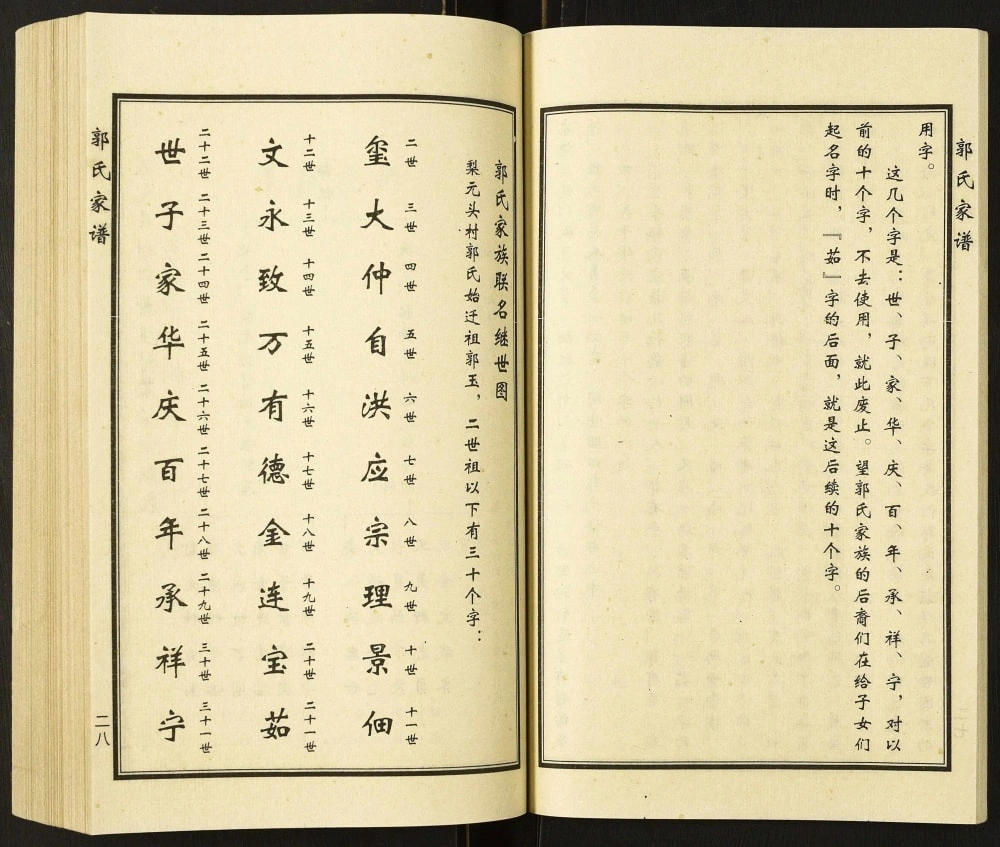 郭氏家谱
用字。
这几个字是：世、子、家、华、庆、百、年、承、祥、宁，对以
前的十个字，不去使用，就此废止。望郭氏家族的后裔们在给子女们
起名字时，『茹』字的后面，就是这后续的十个字。
郭氏家族联名继世图
梨元头村郭氏始迁祖郭玉，二世祖以下有三十个字：
二世 三世 四世 五世 六世 七世 八世 九世 十世 十一世
玺 大 仲 自 洪 应 宗 理 景 佃
十二世 十三世 十四世 十五世 十六世 十七世 十八世 十九世 二十世 二十一世
文 永 致 万 有 德 金 连 宝 茹
二十二世 二十三世 二十四世 二十五世 二十六世 二十七世 二十八世 二十九世 三十世 三十一世
世 子 家 华 庆 百 年 承 祥 宁
郭氏家谱
二八